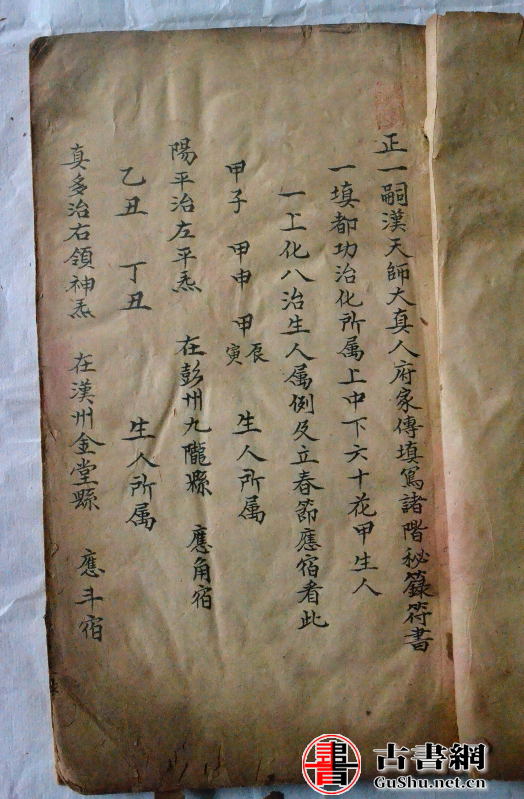 正一嗣漢天師大真人府家傳填寫諸階秘籙符書
一填都功治化所属上中下六十花甲生人
一上化八治生人属例及立春節應宿看此
甲子 甲申 甲辰寅 生人所属
陽平治左平炁 在彭州九隴縣 應角宿
乙丑 丁丑 生人所属
真多治右領神炁 在漢州金堂縣 應斗宿
書 古書網
GuShu.net.cn